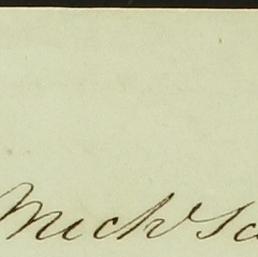 Mich Sa